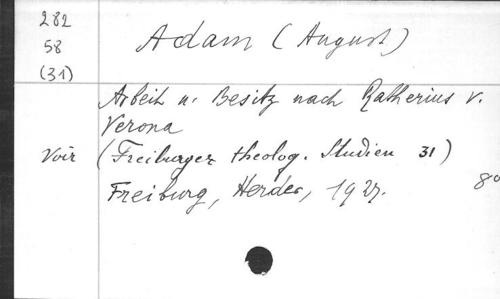 282
58
(31)
Adam (August)
Arbeit u. Besitz nach Ratherius v.
Verona
Voir (Freiburger theolog. Studien 31)
Freiburg, Herder, 1927. 8°